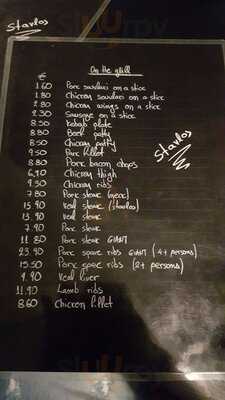 Starlos
On the grill
€
1.60 Porc souvlaci on a stice
1.80 Chicen souvlaci on a stice
2.80 Chicen wings on a stice
2.30 Sausage on a stice
8.50 Kebab plate
8.80 Beef patty
8.50 Chicen patty
9.50 Porc fillet
8.80 Porc bacon chops
6.90 Chicen thigh
9.50 Chicen ribs
7.80 Porc steac (neck)
15.90 Veal steac (Starlos)
13.90 Veal steac
7.90 Porc steac
11.80 Porc steac GIANT
23.90 Porc spare ribs GIANT (4+ persons)
15.50 Porc spare ribs (2+ persons)
9.90 Veal liver
11.90 Lamb ribs
8.60 Chicken fillet
Starlos